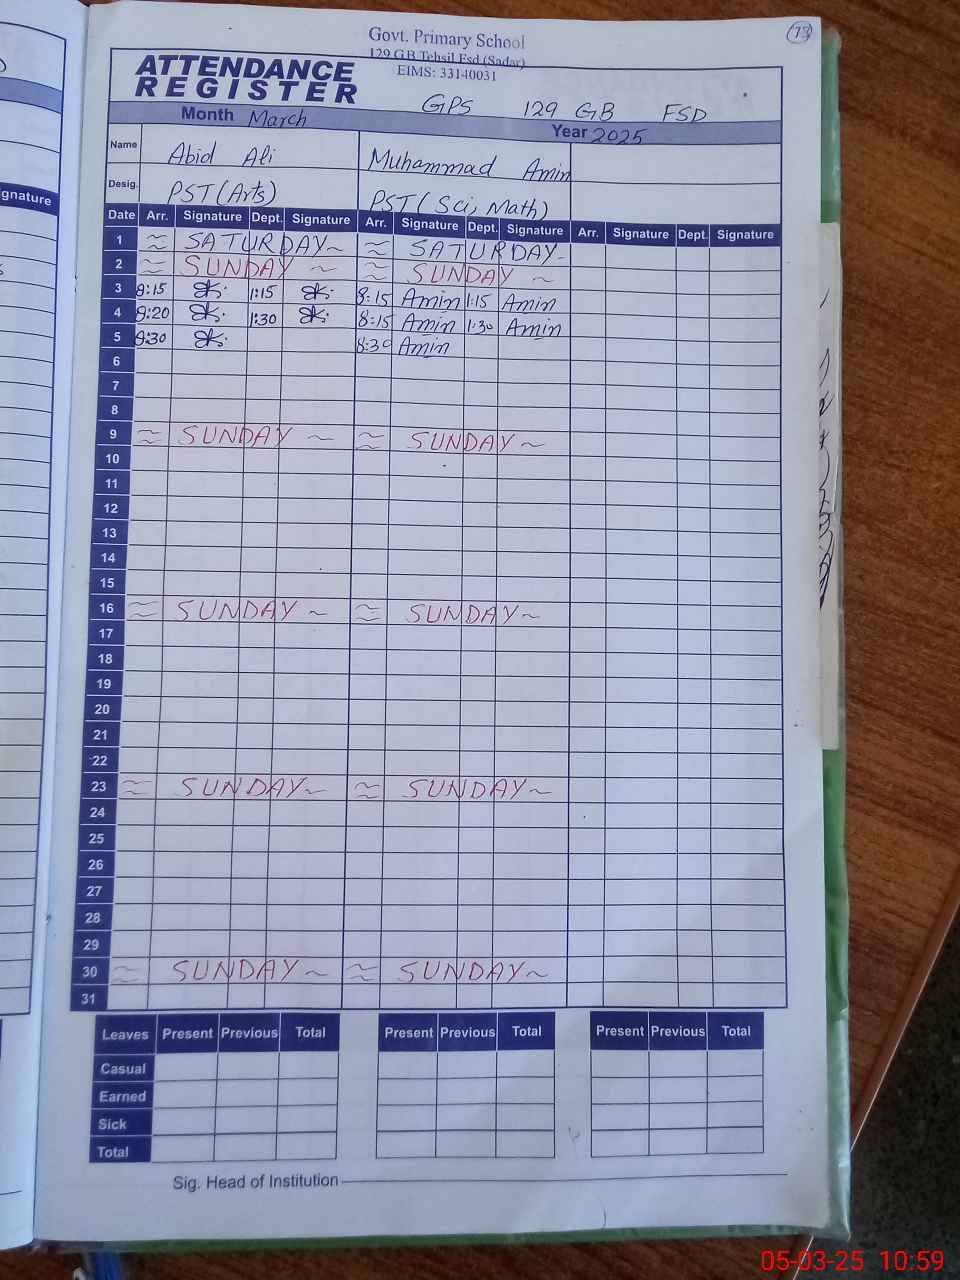 73
Govt. Primary School
129 GB Tehsil Fsd (Sadar)
EIMS: 33140031
ATTENDANCE
REGISTER
GPS 129 GB FSD
Month March Year 2025
Name Abid Ali Muhammad Amin
Desig. PST (Arts) PST (Sci, Math)
Date Arr. Signature Dept. Signature Arr. Signature Dept. Signature Arr. Signature Dept. Signature
1 SATURDAY SATURDAY
2 SUNDAY SUNDAY
3 8:15 1:15 8:15 Amin 1:15 Amin
4 8:20 1:30 8:15 Amin 1:30 Amin
5 8:30 8:30 Amin
6
7
8
9 SUNDAY SUNDAY
10
11
12
13
14
15
16 SUNDAY SUNDAY
17
18
19
20
21
22
23 SUNDAY SUNDAY
24
25
26
27
28
29
30 SUNDAY SUNDAY
31
Leaves Present Previous Total Present Previous Total Present Previous Total
Casual
Earned
Sick
Total
Sig. Head of Institution
gnature
05-03-25 10:59